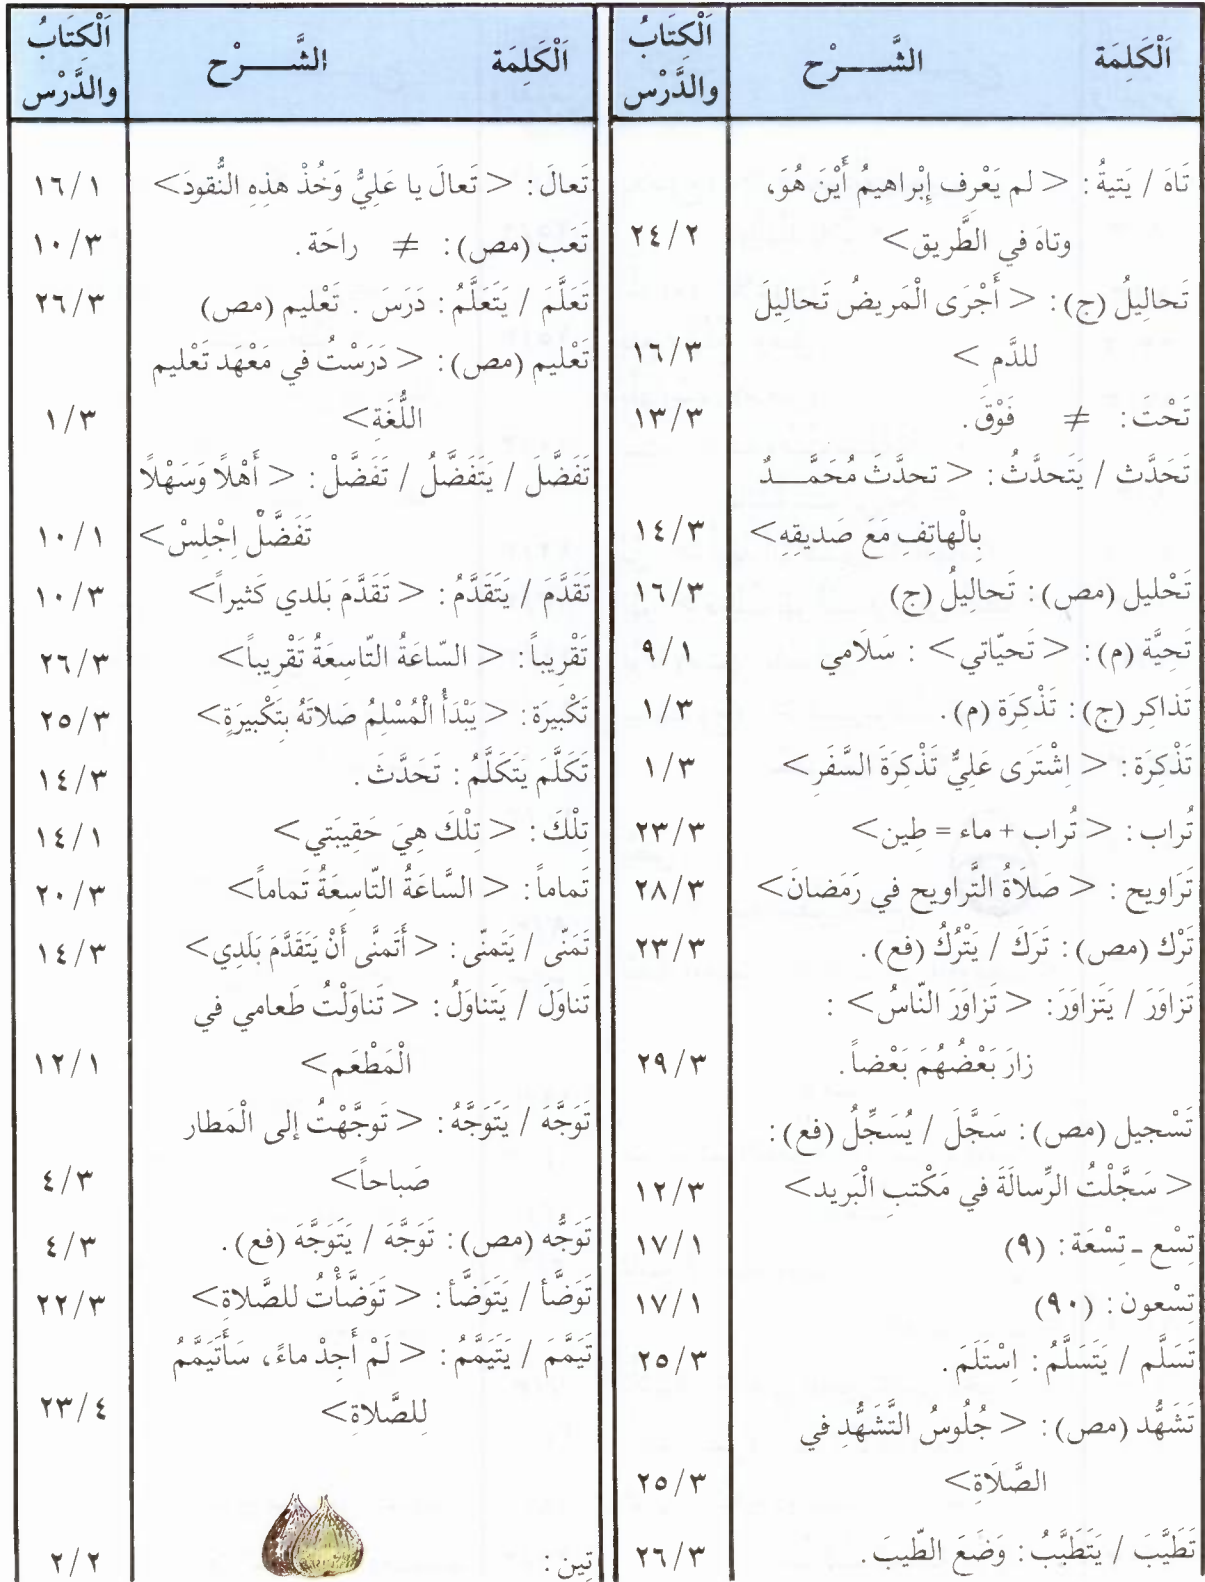 اَلْكَلِمَة الشَّــــرْح اَلْكِتَابُ والدَّرْس
تَاهَ / يَتيهُ : < لم يَعْرِف إِبْراهيمُ أَيْنَ هُوَ،
وتاهَ في الطَّريق> ٢٤/٢
تَحاليلُ (ج) : < أَجْرَى الْمَريضُ تَحاليلَ
للدَّمِ > ١٦/٣
تَحْتَ : ≠ فَوْقَ . ١٣/٣
تَحَدَّث / يَتَحدَّثُ : < تحدَّثَ مُحَمَّــــدٌ
بِالْهاتِفِ مَعَ صَديقِهِ> ١٤/٣
تَحْليل (مص) : تَحاليلُ (ج) ١٦/٣
تَحِيَّة (م) : < تَحيّاتي> : سَلَامي ٩/١
تَذاكِر (ج) : تَذْكِرَة (م) . ١/٣
تَذْكِرَة : < اِشْتَرَى عَلِيٌّ تَذْكِرَةَ السَّفَرِ> ١/٣
تُراب : < تُراب + ماء = طِين> ٢٣/٣
تَرَاويح : < صَلَاةُ التَّراويح في رَمَضانَ> ٢٨/٣
تَرْك (مص) : تَرَكَ / يَتْرُكُ (فع) . ٢٣/٣
تَزاوَرَ / يَتَزاوَرَ : < تَزاوَرَ النّاسُ> :
زارَ بَعْضُهُمَ بَعْضاً . ٢٩/٣
تَسْجيل (مص) : سَجَّلَ / يُسَجِّلُ (فع) :
< سَجَّلْتُ الرِّسالَةَ في مَكْتبِ الْبَريد> ١٢/٣
تِسْع ـ تِسْعَة : (٩) ١٧/١
تِسْعون : (٩٠) ١٧/١
تَسَلَّم / يَتَسَلَّمُ : اِسْتَلَمَ . ٢٥/٣
تَشَهُّد (مص) : < جُلُوسُ التَّشَهُّدِ في
الصَّلَاةِ> ٢٥/٣
تَطَيَّبَ / يَتَطَيَّبُ : وَضَعَ الطّيبَ . ٢٦/٣
اَلْكَلِمَة الشَّــــرْح اَلْكِتَابُ والدَّرْس
تَعالَ : < تَعالَ يا عَلِيُّ وَخُذْ هذِهِ النُّقودَ> ١٦/١
تَعَب (مص) : ≠ راحَة . ١٠/٣
تَعَلَّمَ / يَتَعَلَّمُ : دَرَسَ . تَعْليم (مص) ٢٦/٣
تَعْليم (مص) : < دَرَسْتُ في مَعْهَد تَعْليم
اللُّغَةِ> ١/٣
تَفَضَّلَ / يَتَفَضَّلُ / تَفَضَّلْ : < أَهْلًا وَسَهْلًا
تَفَضَّلْ اِجْلِسْ> ١٠/١
تَقَدَّمَ / يَتَقَدَّمُ : < تَقَدَّمَ بَلَدي كَثيراً> ١٠/٣
تَقْريباً : < السّاعَةُ التّاسِعَةُ تَقْريباً> ٢٦/٣
تَكْبيرَة : < يَبْدَأُ الْمُسْلِمُ صَلاتَهُ بِتَكْبيرَةٍ> ٢٥/٣
تَكَلَّمَ يَتَكَلَّمُ : تَحَدَّثَ . ١٤/٣
تِلْكَ : < تِلْكَ هِيَ حَقِيبَتي> ١٤/١
تَماماً : < السَّاعَةُ التّاسِعَةُ تَماماً> ٢٠/٣
تَمَنّى / يَتَمنّى : < أَتَمنَّى أَنْ يَتَقَدَّمَ بَلَدِي> ١٤/٣
تَناوَلَ / يَتَناوَلُ : < تَناوَلْتُ طَعامي في
الْمَطْعَم> ١٢/١
تَوَجَّهَ / يَتَوَجَّهُ : < تَوجَّهْتُ إلى الْمَطار
صَباحاً> ٤/٣
تَوَجُّه (مص) : تَوَجَّهَ / يَتَوَجَّهَ (فع) . ٤/٣
تَوَضَّأ / يَتَوَضَّأ : < تَوَضَّأْتُ للصَّلاةِ> ٢٢/٣
تَيَمَّمَ / يَتَيَمَّمُ : < لَمْ أَجِدْ ماءً، سَأَتَيَمَّمُ
لِلصَّلاةِ> ٢٣/٤
تين : ٢/٢